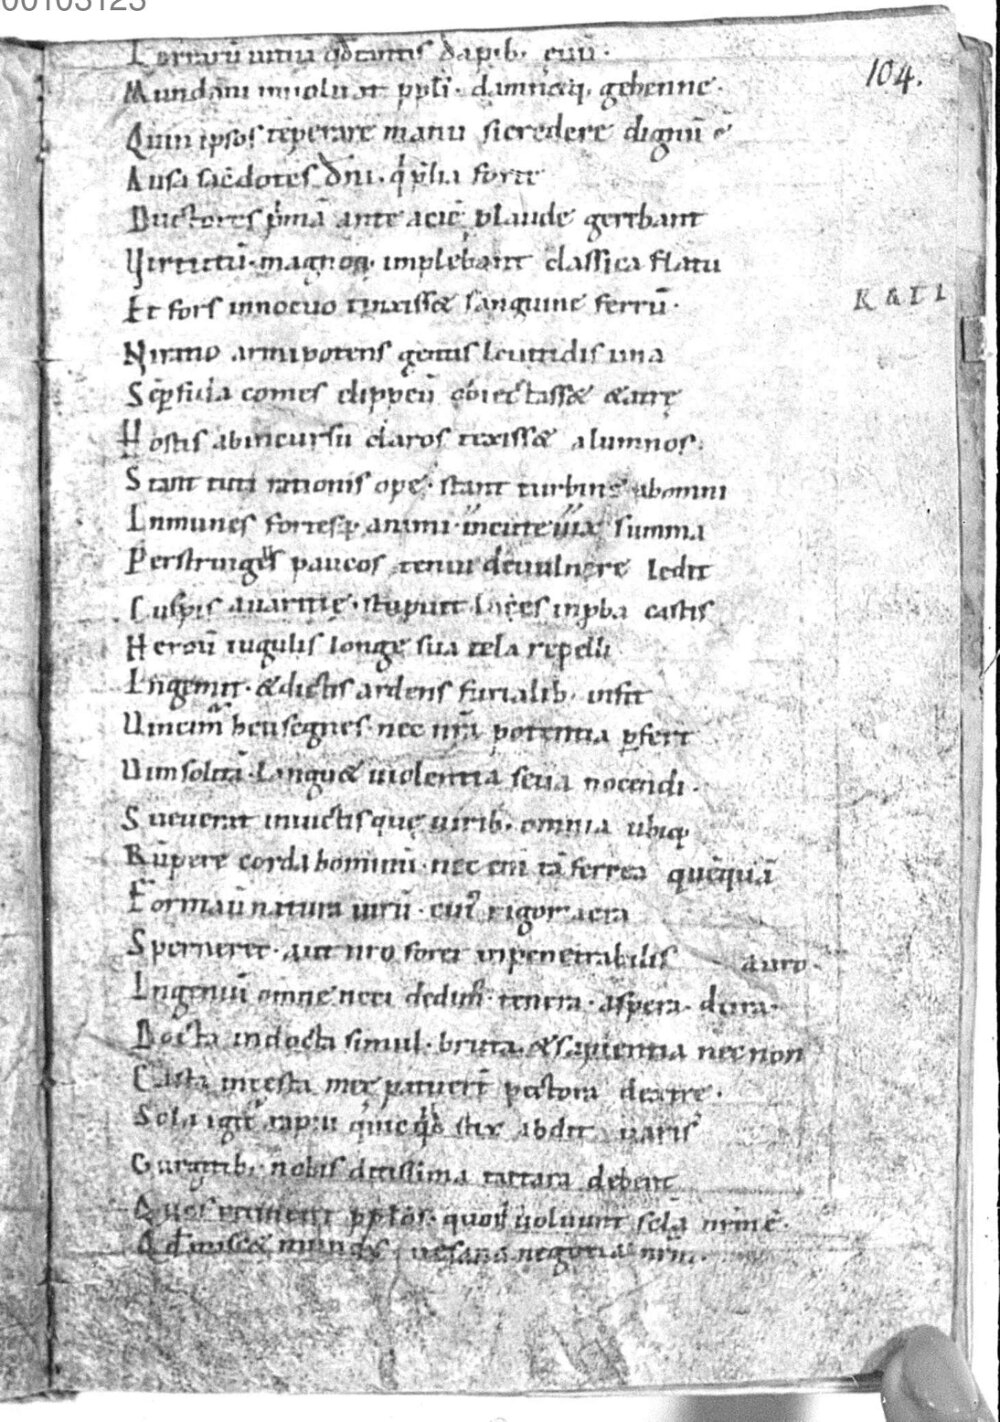 00103123
104.
Terrarū uitiū qđ cunctis dapib. euū.
Mundanū inuoluit ppl̄i. damnatq, gehenne.
Quin ipsos teperare manu si credere dignū ē
Ausa sac̄dotes dn̄i. q̇ p̄lia forte
Ductores p̓mā ante aciē p laude gerebant
Virtutū. magnoq. implebant classica flatu
Et fors innocuo tinxisset sanguine ferrū.
RATI
Ni ratio armipotens gentis leuitidis una
Sēp fida comes clippeū obiectasset & atrę
Hostis ab incursu claros texisset alumnos.
Stant tuti rationis ope. stant turbine ab omni
Inmunes fortesq. animi. incute uix summa
Perstringēs paucos tenui de uulnere ledit
Cuspis auaritię. stupuit lues inp̄ba castis
Heroū iugulis longe sua tela repelli
Ingemit. & dictis ardens furialib. infit
Uincim̄ heu segnes. nec nr̄a potentia p̄fert
Uim solitā. languet uiolentia seua nocendi.
Sueuerat inuictis que uirib. omnia ubiq
Rūpere corda hominū. nec enī tā ferrea quēquā
Formauit natura uirū. cui᷒ rigor aera
Sperneret. aut nr̄o foret inpenetrabilis auro.
Ingeniū omne neci dedim̄. tenera. aspera. dura.
Docta indocta simul. bruta. & sapientia nec non
Casta incesta meę patuerē pectora dextrę.
Sola igit̄ rapui quicq̇d stix abdit auaris
Gurgitib. nobis ditissima tartara debent
Quos retinent pp̄l̄os. quod uoluunt scl̄a nr̄m ē.
Qđ miscet mundus uesana negotia nr̄m.